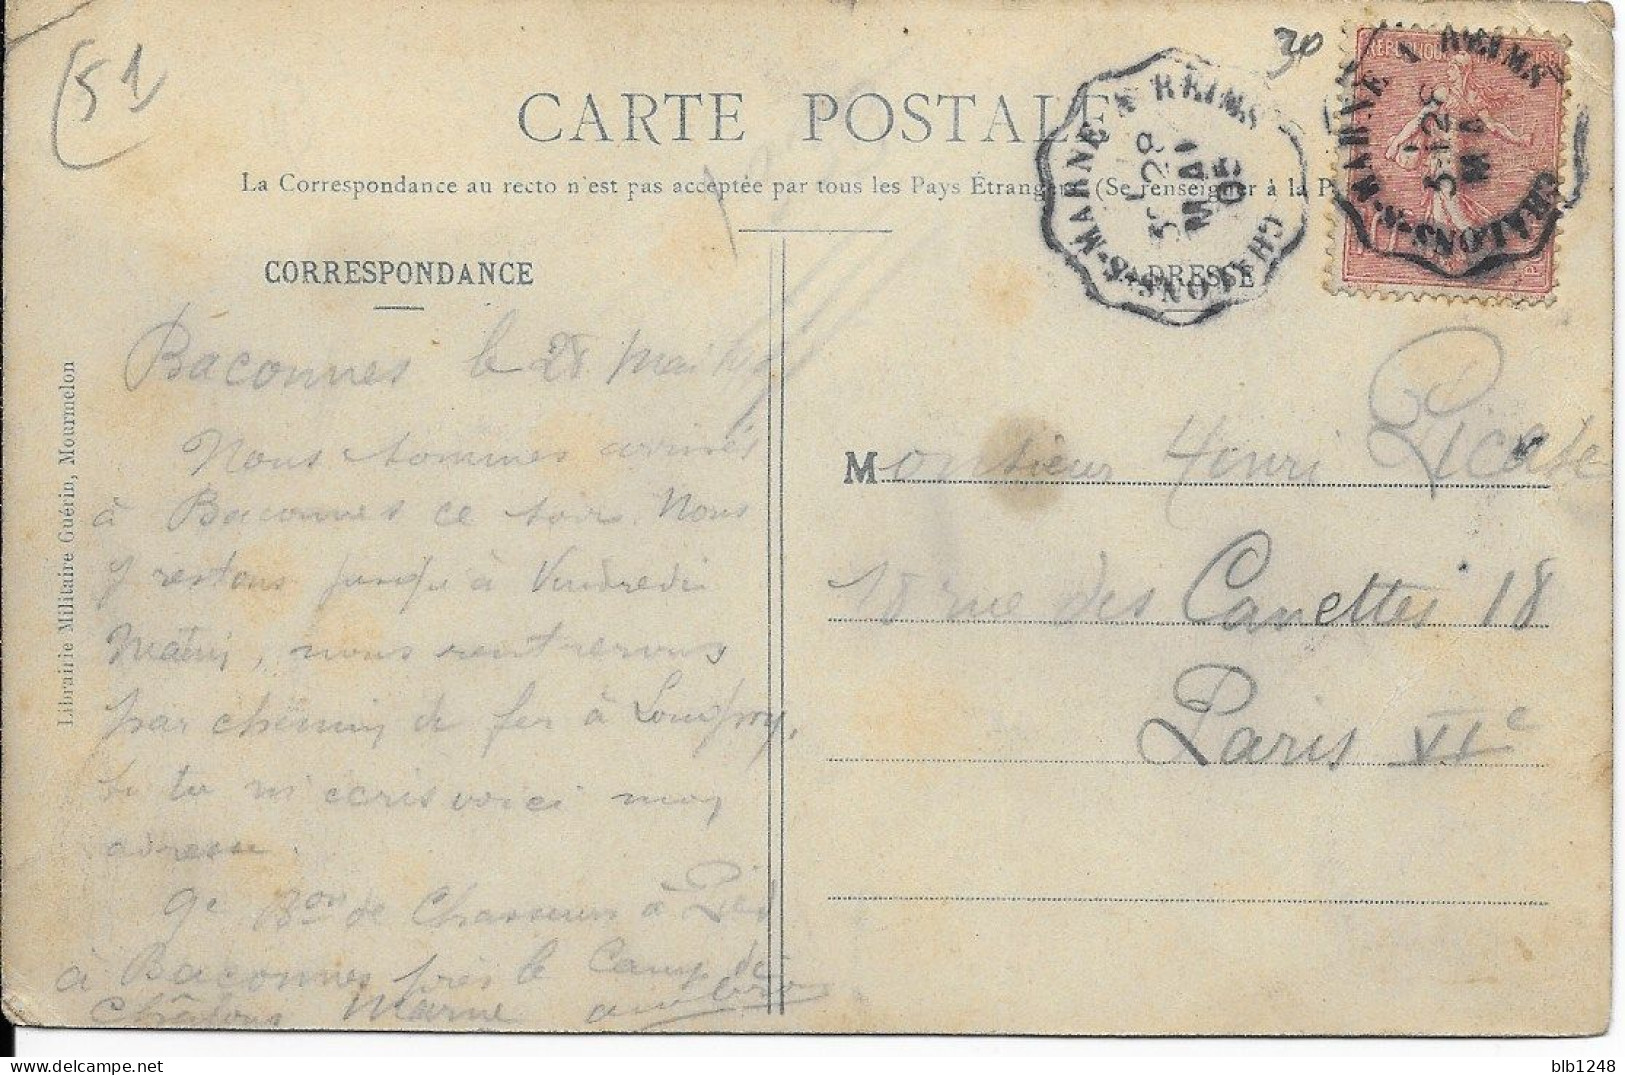 (51
30
CARTE POSTALE
La Correspondance au recto n'est pas acceptée par tous les Pays Étrangers (Se renseigner à la P
CHALONS-S-MARNE A REIMS
3E 28
MAI
05
CHALONS-S-MARNE A REIMS
3E 28
MAI
CORRESPONDANCE
ADRESSE
Baconnes le 28 mai
Nous sommes arrivés
à Baconnes ce soir. Nous
y restons jusqu'à Vendredi
Matin, nous rentrerons
par chemin de fer à
Si tu m'écris voici mon
adresse.
9e Bon de Chasseurs à Pied
à Baconnes près le Camp de
Châlons Marne
Monsieur Henri
18 rue des Canettes 18
Paris VIe
Librairie Militaire Guérin, Mourmelon
blb1248